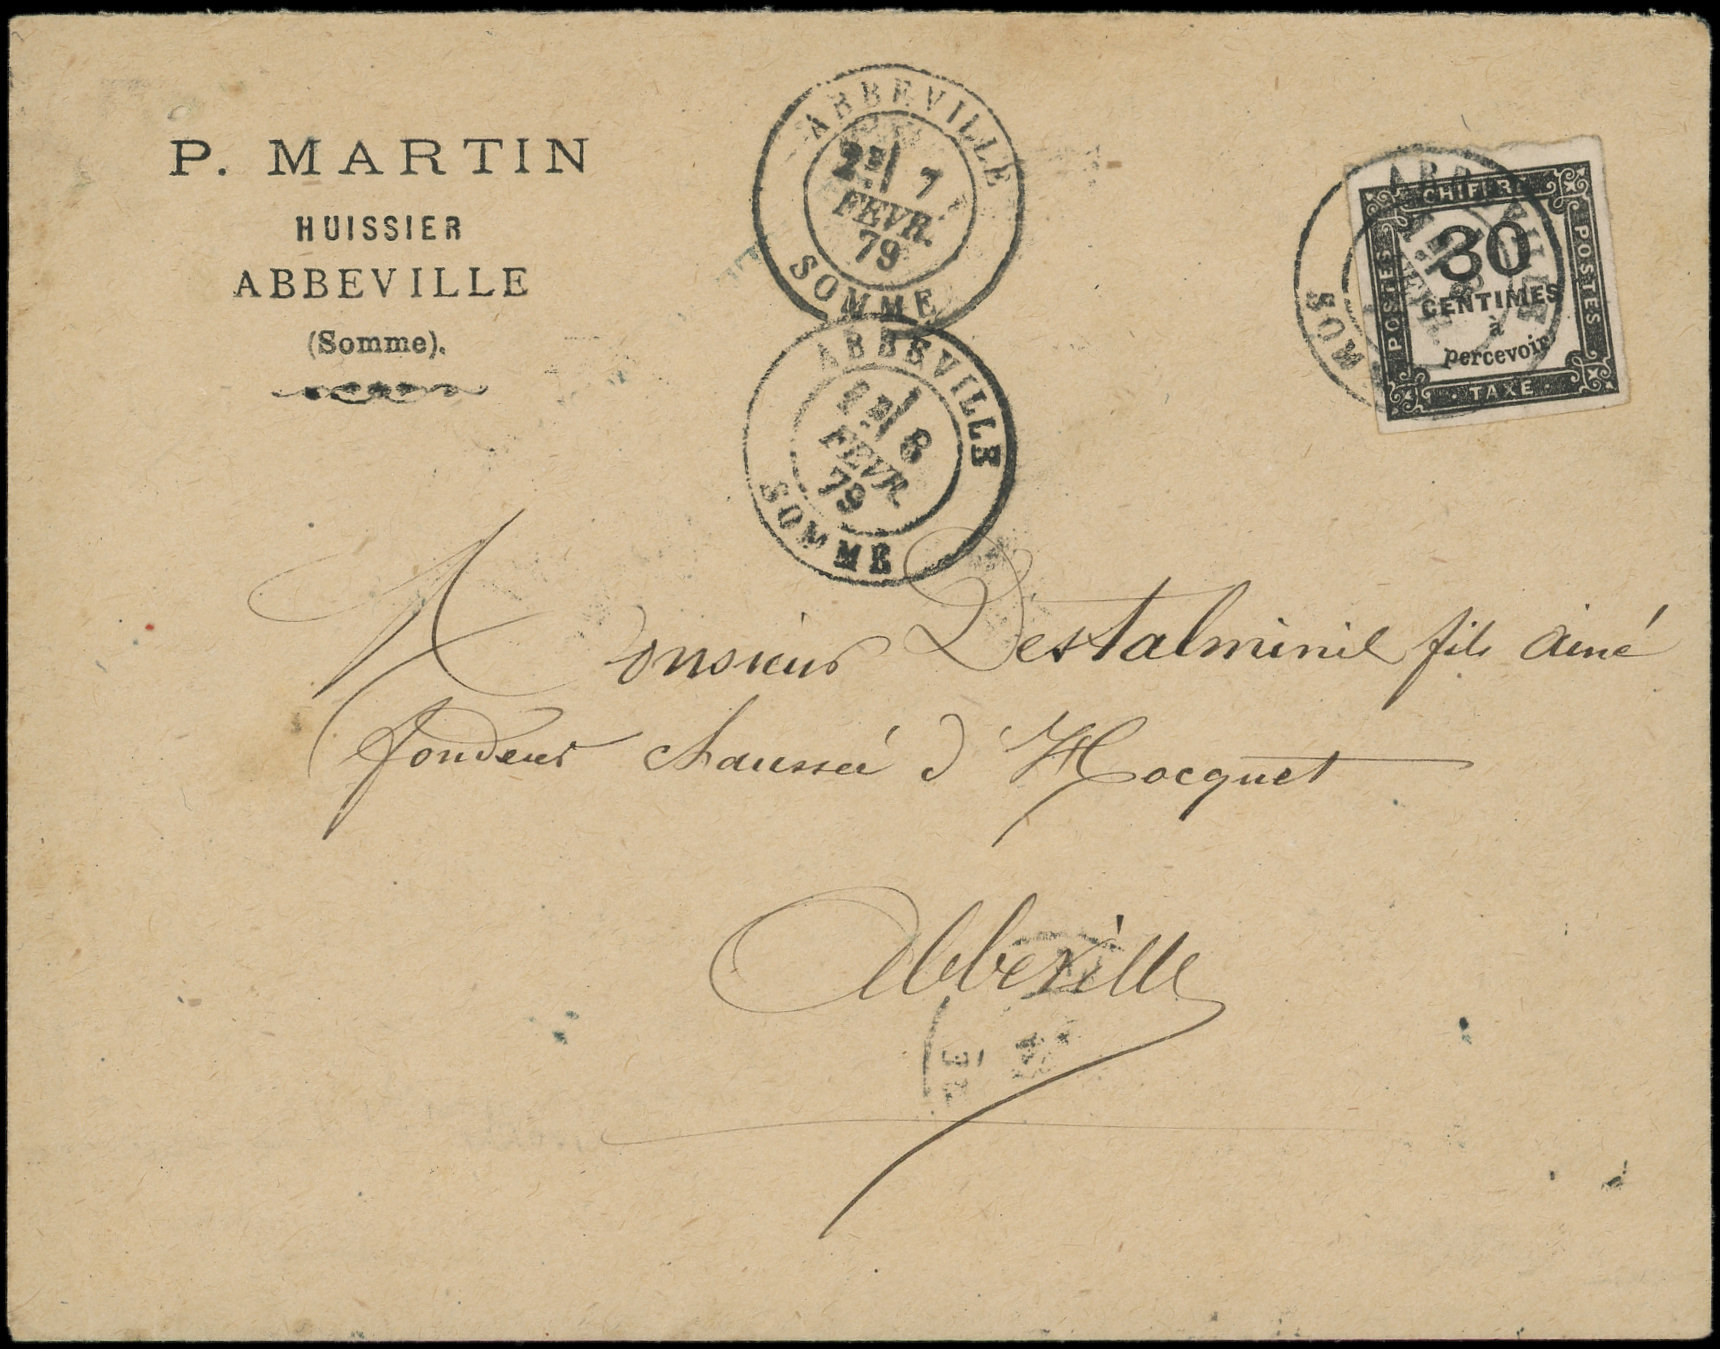 P. MARTIN
HUISSIER
ABBEVILLE
(Somme).
ABBEVILLE
2E/ 7
FEVR.
79
SOMME
ABBEVILLE
1E/ 8
FEVR.
79
SOMME
CHIFFRE
POSTES
30
CENTIMES
à
percevoir
POSTES
TAXE
Monsieur Destalminil fils ainé
fondeur chaussée d'Hocquet
Abbeville